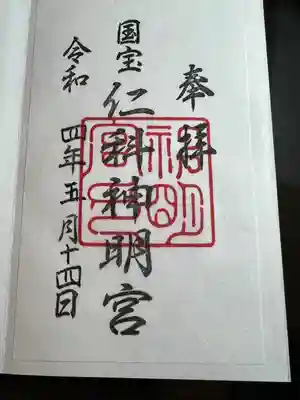 奉拝
国宝
仁科神明宮
令和四年五月十四日